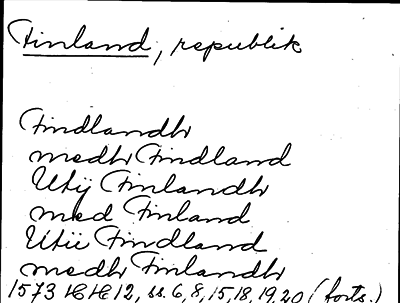 Finland, republik
Findlandh
medh Findland
Utÿ Finlandh
med Finland
Utii Findland
medh Finlandh
1573 HH 12, ss. 6, 8, 15, 18, 19, 20 (forts.)